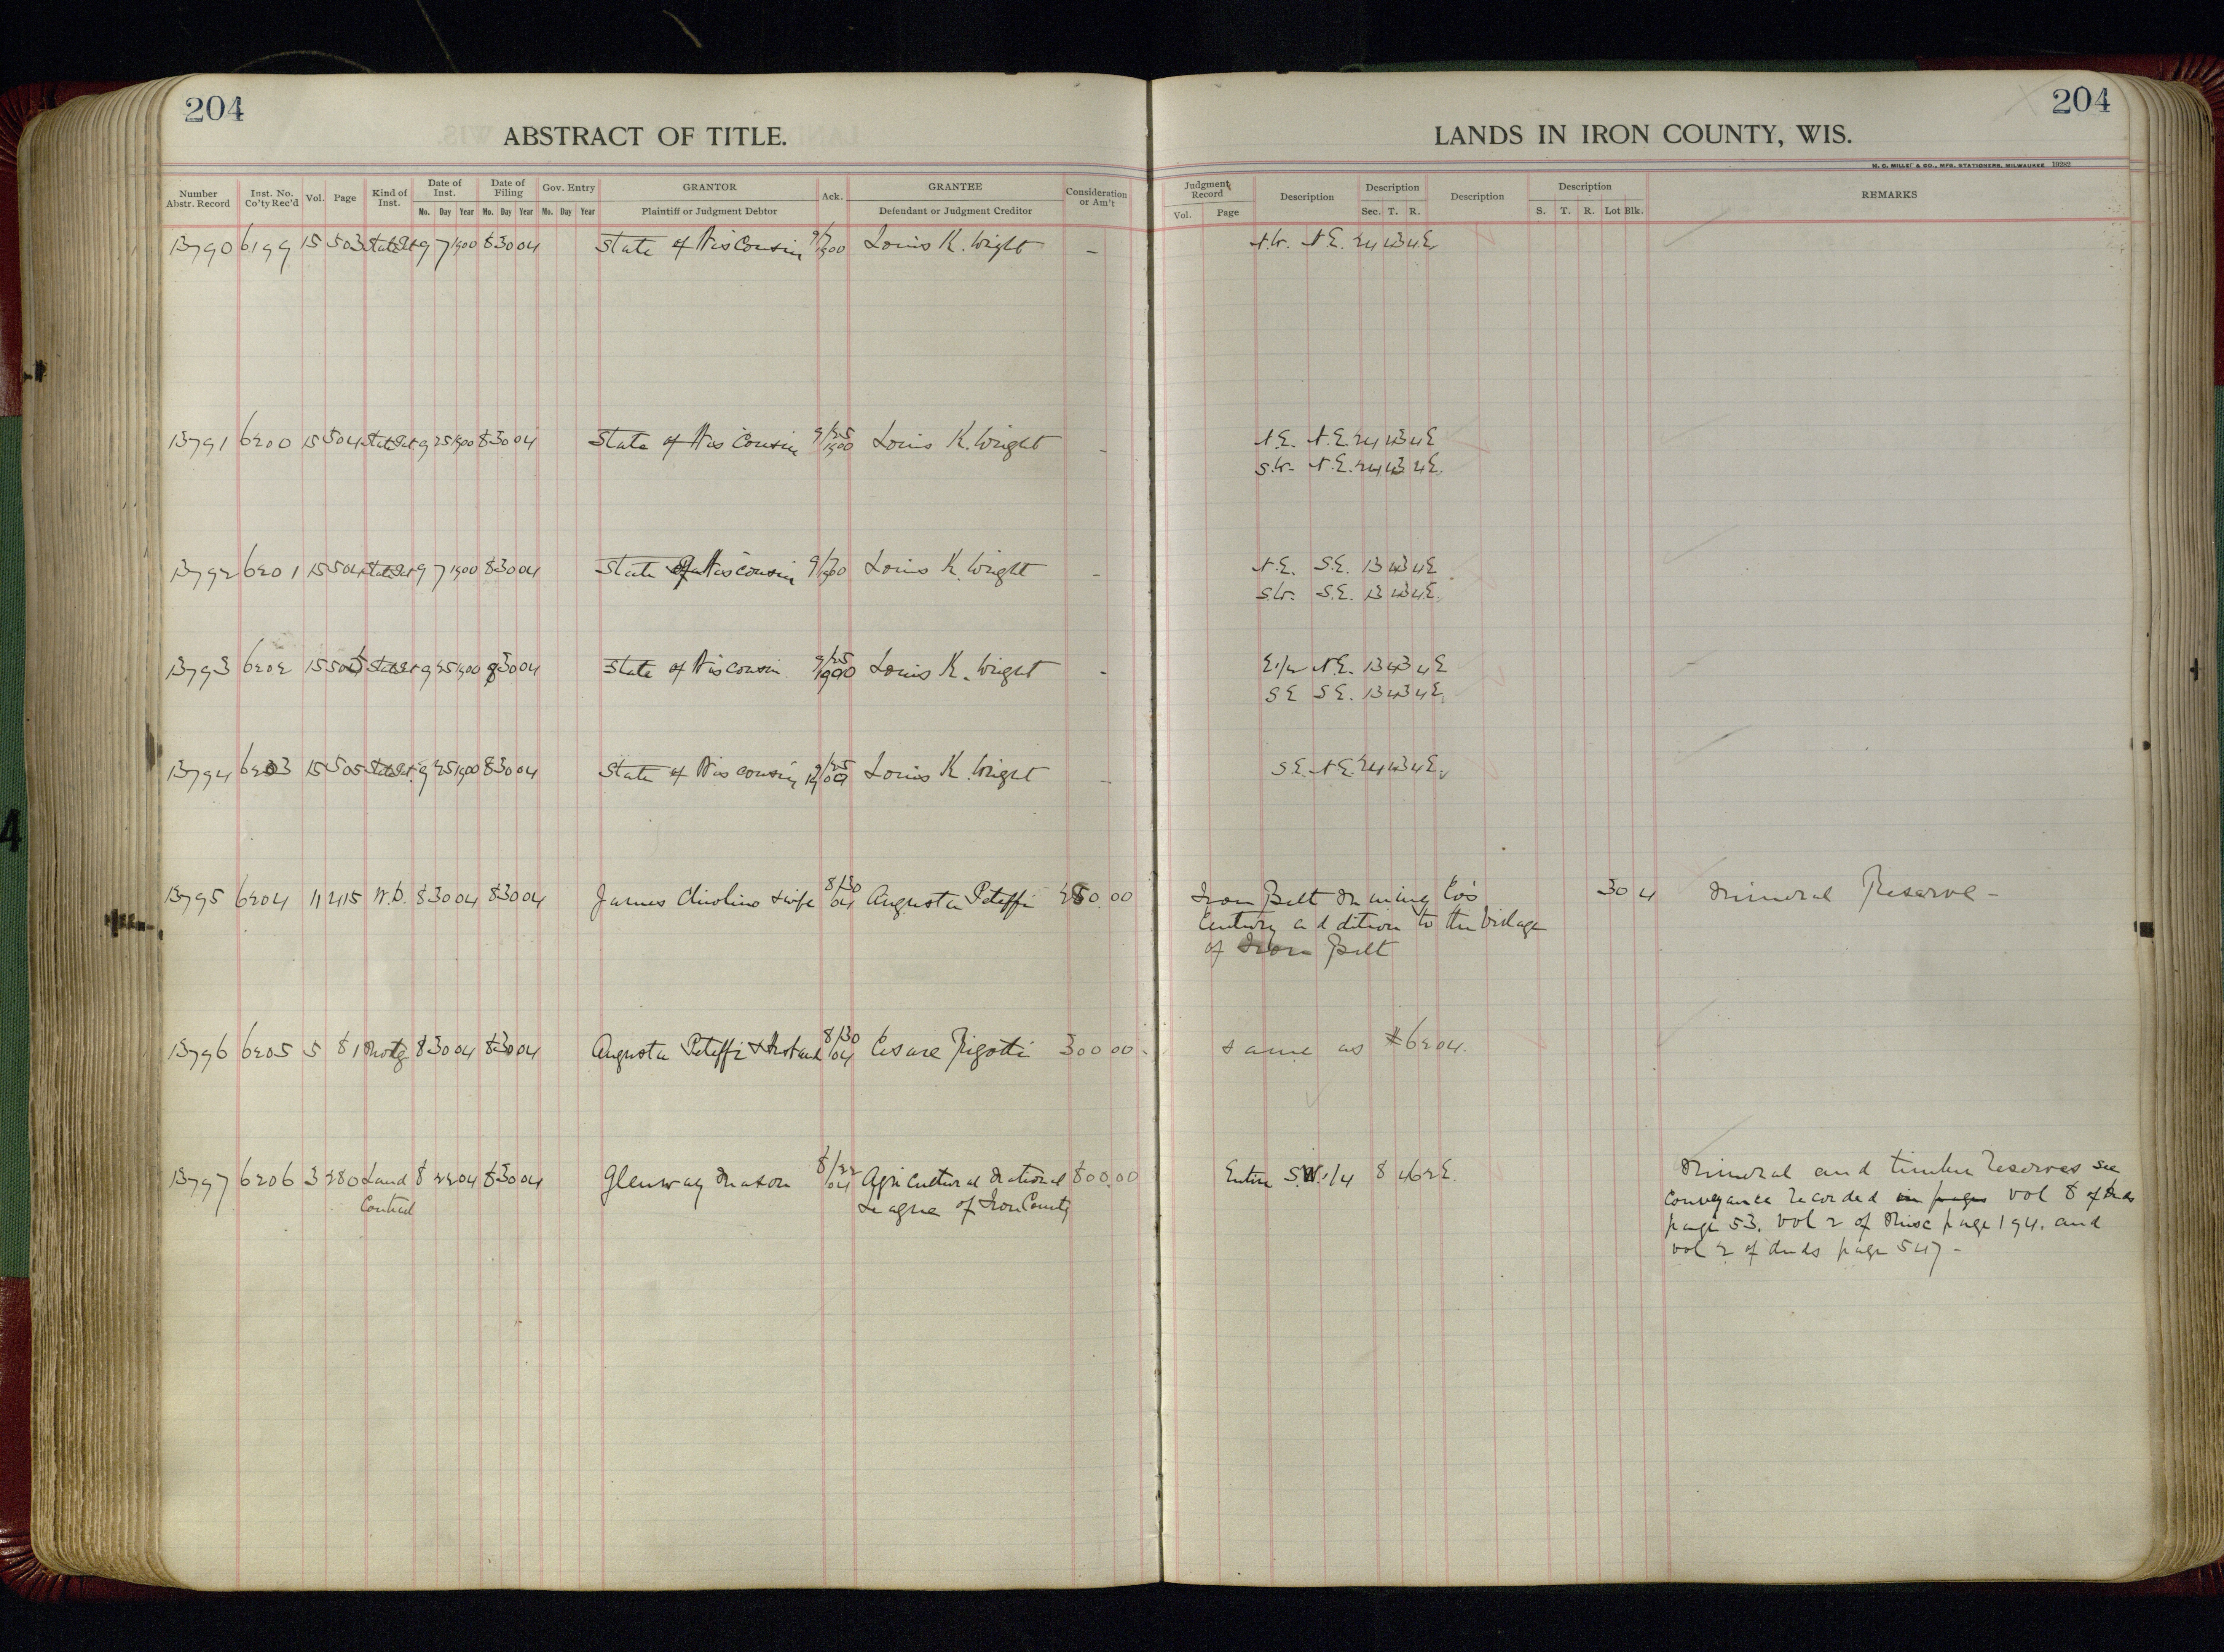 204
ABSTRACT OF TITLE.
204
LANDS IN IRON COUNTY, WIS.
H. C. MILLER & CO., MFG. STATIONERS, MILWAUKEE 19282
Number Abstr. Record | Inst. No. Co'ty Rec'd | Vol. | Page | Kind of Inst. | Date of Inst. Mo. Day Year | Date of Filing Mo. Day Year | Gov. Entry Mo. Day Year | GRANTOR Plaintiff or Judgment Debtor | Ack. | GRANTEE Defendant or Judgment Creditor | Consideration or Am't | Judgment Record Vol. Page | Description | Description Sec. T. R. | Description | Description S. T. R. Lot Blk. | REMARKS
13790 6199 15 503 9 7 1900 8 30 04 State of Wisconsin 9/7 1900 Louis K. Wright – N.W. N.E. 24 43 4E
13791 6200 15 504 9 25 1900 8 30 04 State of Wisconsin 9/25 1900 Louis K. Wright - N.E. N.E. 24 43 4E
S.W. N.E. 24 43 4E.
13792 6201 15 504 9 7 1900 8 30 04 State of Wisconsin 9/7 1900 Louis K. Wright - N.E. S.E. 13 43 4E
S.W. S.E. 13 43 4E.
13793 6202 15 505 9 25 1900 8 30 04 State of Wisconsin 9/25 1900 Louis K. Wright - E.1/2 N.E. 13 43 4E
S E S E. 13 43 4E.
13794 6203 15 505 9 25 1900 8 30 04 State of Wisconsin 9/25 1900 Louis K. Wright - S.E. N.E. 24 43 4E.
13795 6204 11 415 W.D. 8 30 04 8 30 04 James & wife 8/30 04 Augusta Peteffi 00 Iron Belt Mining Co's 30 4 Mineral Reserve –
Century addition to the Village
of Iron Belt
13796 6205 5 81 Mortg 8 30 04 8 30 04 Augusta Peteffi & Husband 8/30 04 Cesare Rigotti 300 00 same as #6204.
13797 6206 3 280 Land 8 22 04 8 30 04 Glenway Maxon 8/22 04 Agricultural National 800.00 Entire S.W.1/4 8 46 2E. Mineral and timber reserves see
Contract League of Iron County conveyance recorded in pages vol 8 of Deeds
page 53. vol 2 of Misc page 194. and
vol 2 of deeds page 547 -